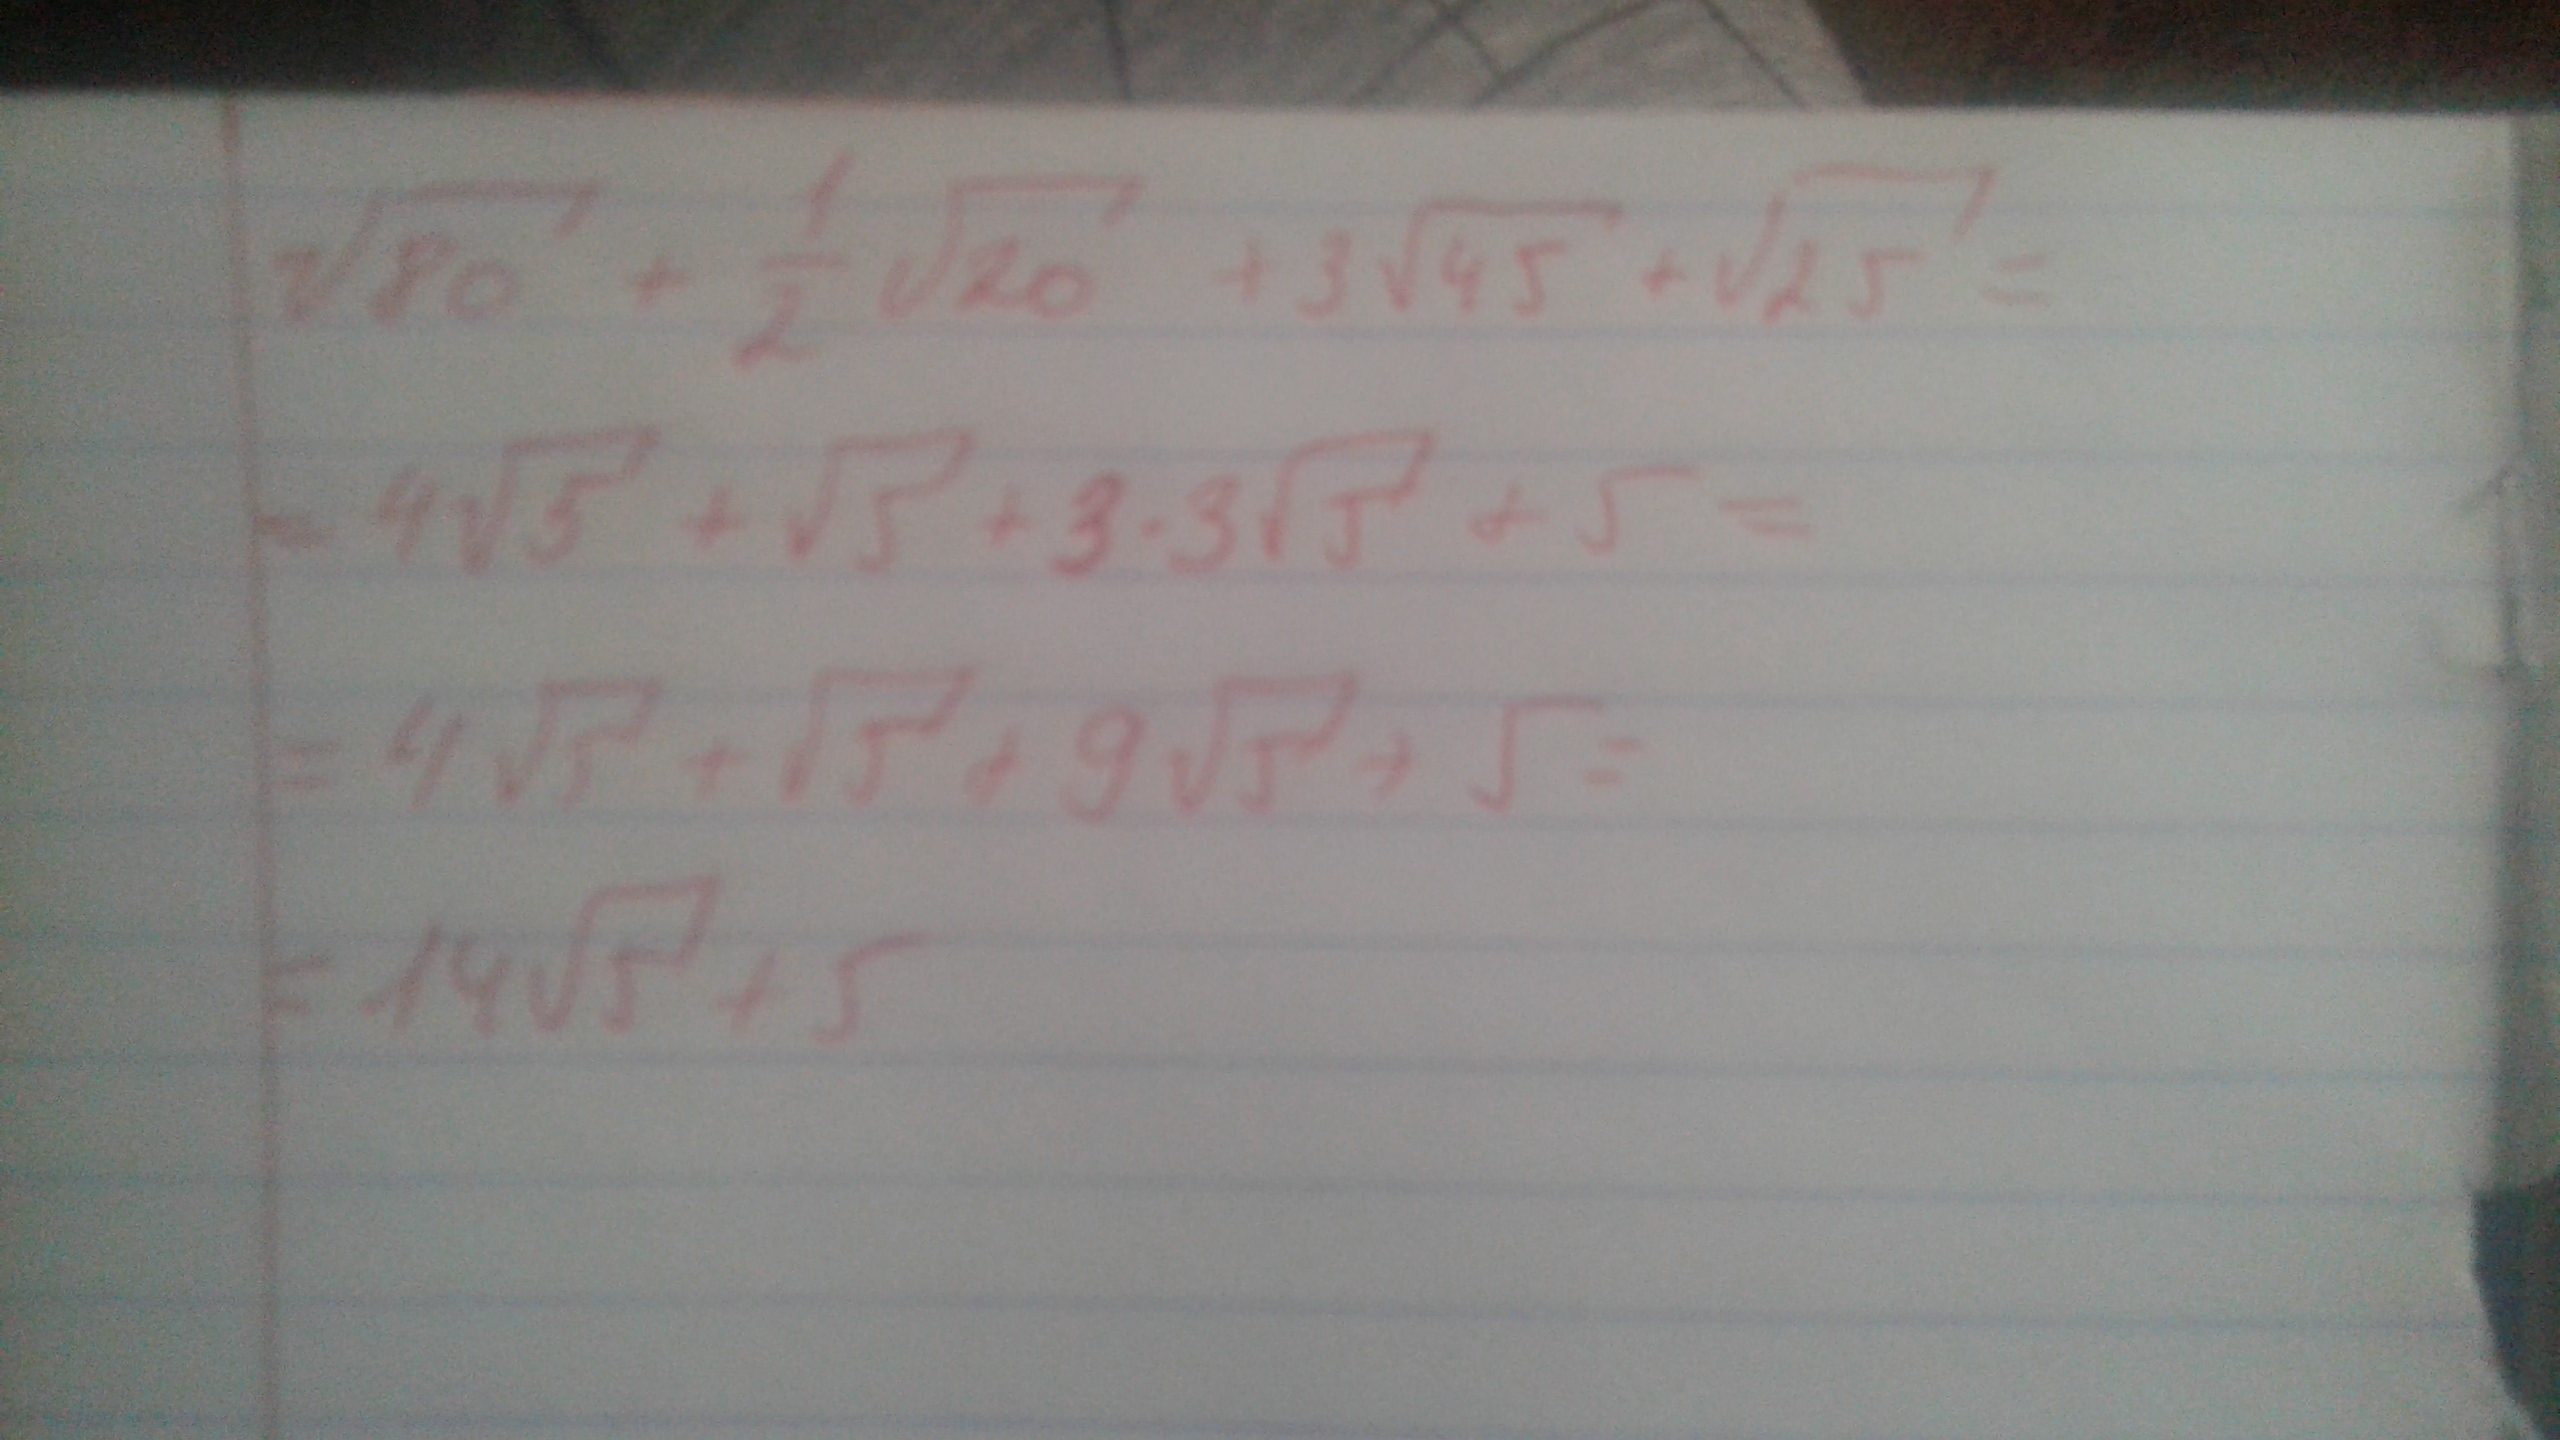 √80 + 1/2 √20 + 3√45 + √25 =
= 4√5 + √5 + 3·3√5 + 5 =
= 4√5 + √5 + 9√5 + 5 =
= 14√5 + 5